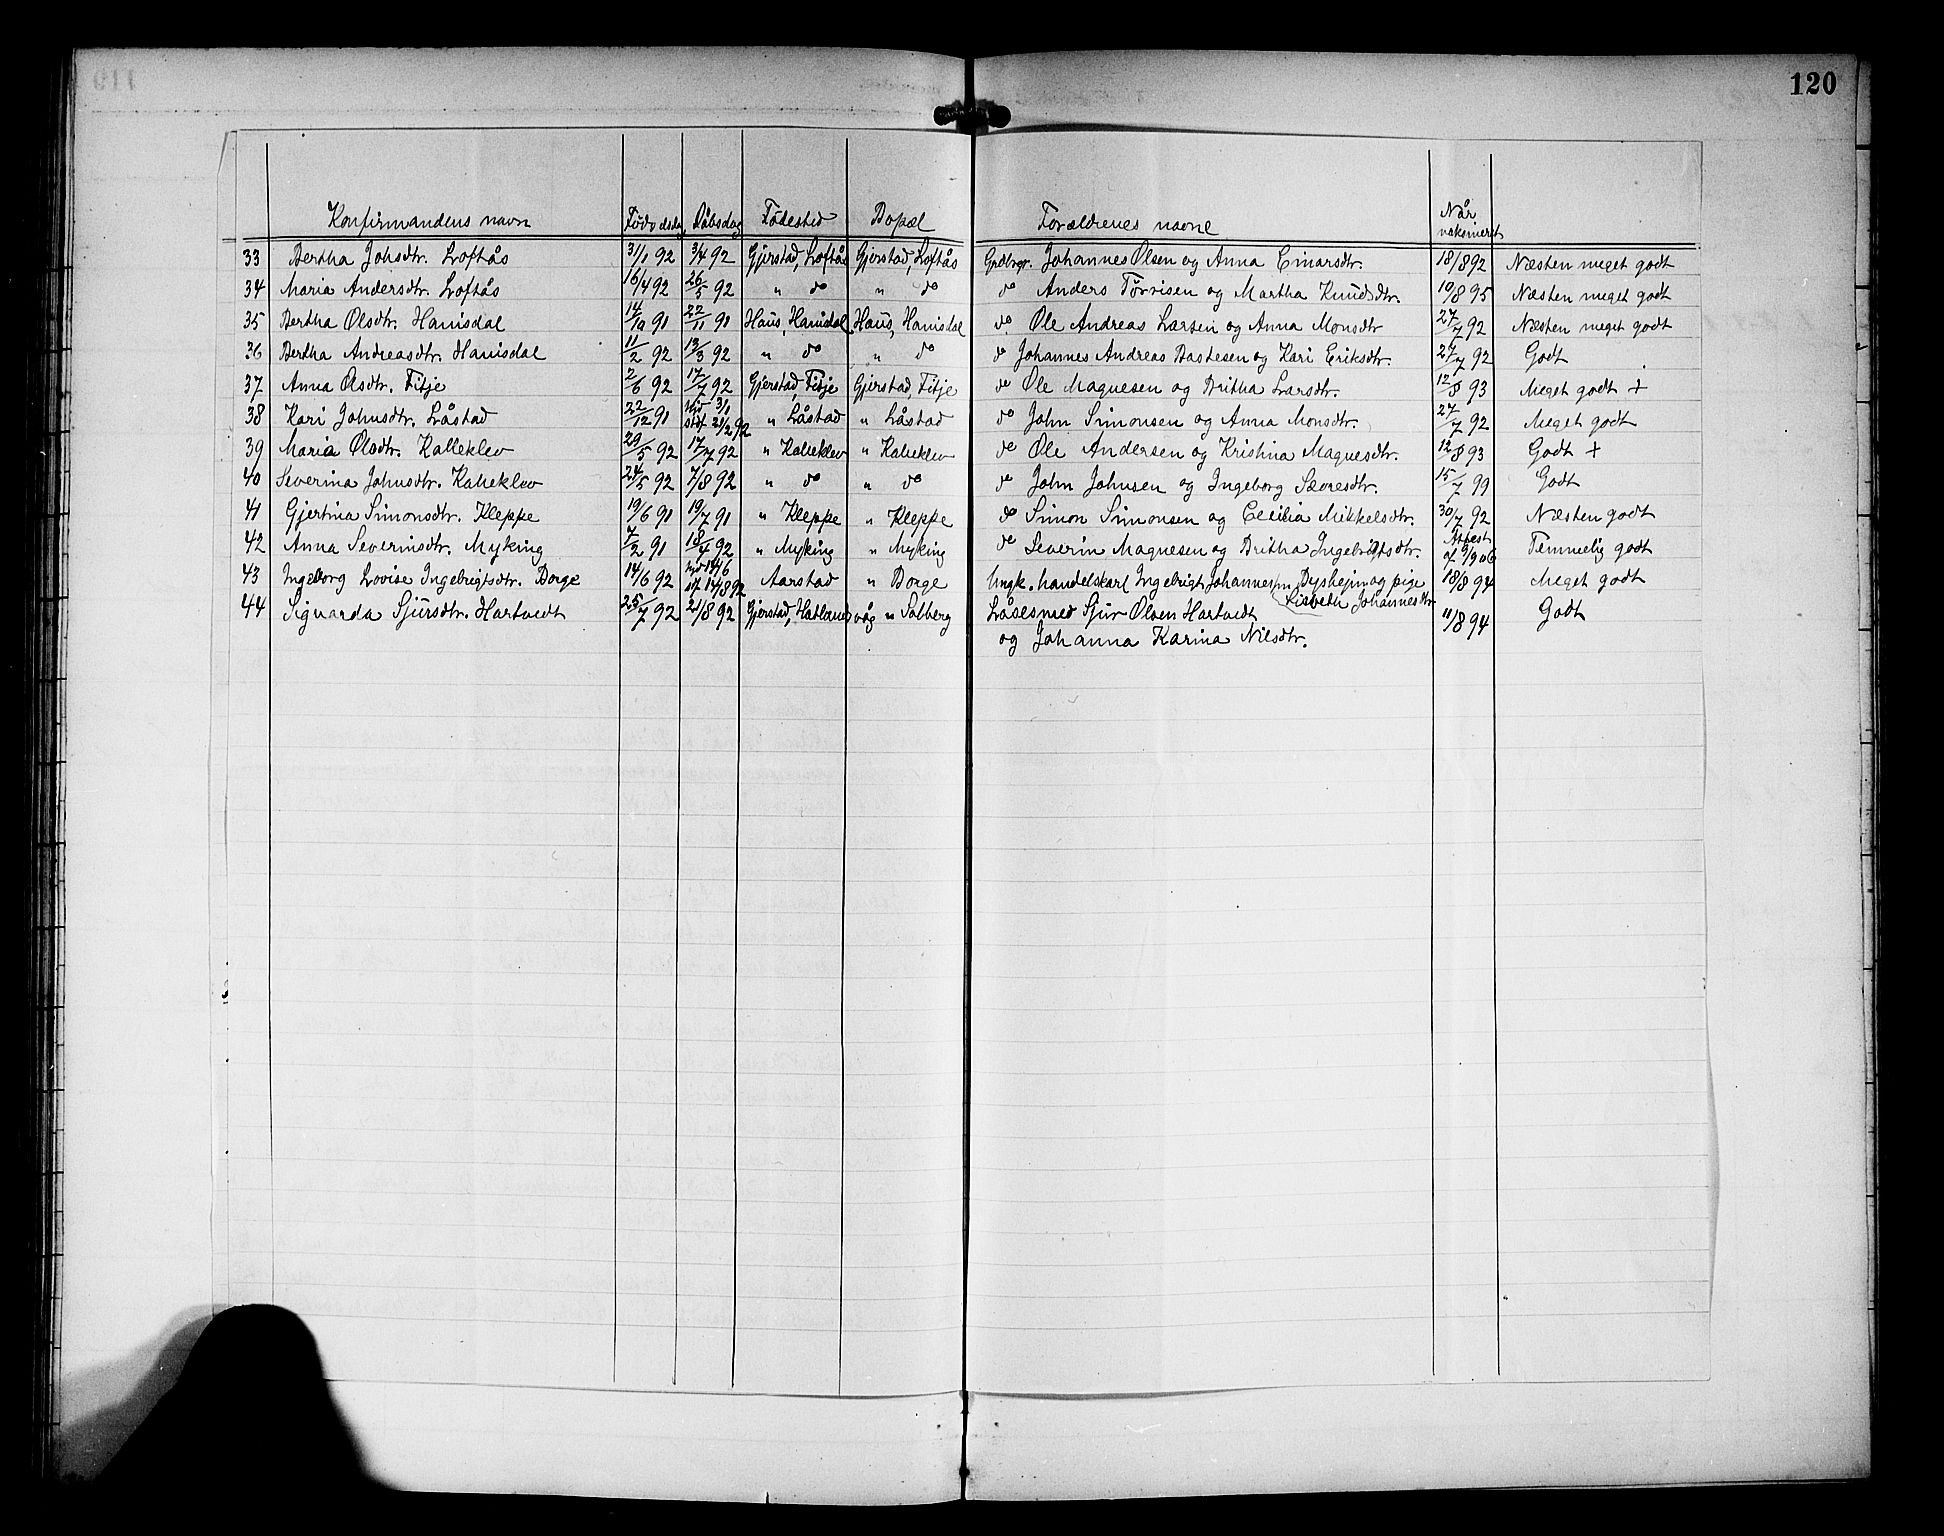 120
Konfirmandens navn Fødselsdag Dåbsdag Fødested Bopæl Forældrenes navne Når vaksineret
33 Bertha Johsdtr. Loftås 31/1 92 3/4 92 Gjerstad, Loftås Gjerstad, Loftås Grdbrgr. Johannes Olsen og Anna Einarsdtr. 18/8 92 Næsten meget godt
34 Maria Andersdtr. Loftås 16/4 92 26/5 92 " do " do do Anders Tørrisen og Martha Knudsdtr. 10/8 95 Næsten meget godt
35 Bertha Olsdtr. Hanisdal 14/10 91 22/11 91 Haus, Hanisdal Haus, Hanisdal do Ole Andreas Larsen og Anna Monsdtr 27/7 92 Næsten meget godt
36 Bertha Andreasdtr. Hanisdal 11/2 92 13/3 92 " do " do do Johannes Andreas Bastesen og Kari Eriksdtr. 27/7 92 Godt
37 Anna Olsdtr. Fitje 2/6 92 17/7 92 Gjerstad, Fitje Gjerstad, Fitje do Ole Magnesen og Britha Larsdtr. 12/8 93 Meget godt +
38 Kari Johnsdtr. Låstad 22/12 91 hjd 3/1 stdf 21/2 92 " Låstad " Låstad do John Simonsen og Anna Monsdtr. 27/7 92 Meget godt
39 Maria Olsdtr. Kalleklev 29/5 92 17/7 92 " Kalleklev " Kalleklev do Ole Andersen og Kristina Magnesdtr. 12/8 93 Godt +
40 Severina Johnsdtr. Kalleklev 24/5 92 7/8 92 " do " do do John Johnsen og Ingeborg Sæveresdtr. 15/7 99 Godt
41 Gjertina Simonsdtr. Kleppe 19/6 91 19/7 91 " Kleppe " Kleppe do Simon Simonsen og Cecilia Mikkelsdtr. 30/7 92 Næsten godt
42 Anna Severinsdtr. Myking 7/2 91 18/4 92 " Myking " Myking do Severin Magnesen og Britha Ingebrigtsdtr. Attest af 9/9 06 Temmelig godt
43 Ingeborg Lovise Ingebrigtsdtr. Borge 14/6 92 14/8 92 Aarstad " Borge Ungk. handelskarl Ingebrigt Johannesen Dyshejm og pige Lisbeth Johannesdtr 18/8 94 Meget godt
44 Sigvarda Sjursdtr. Hartvedt 25/7 92 21/8 92 Gjerstad, Hatlandsvåg " Solberg Låsesmed Sjur Olsen Hartvedt 11/8 94 Godt
og Johanna Karina Nilsdtr.